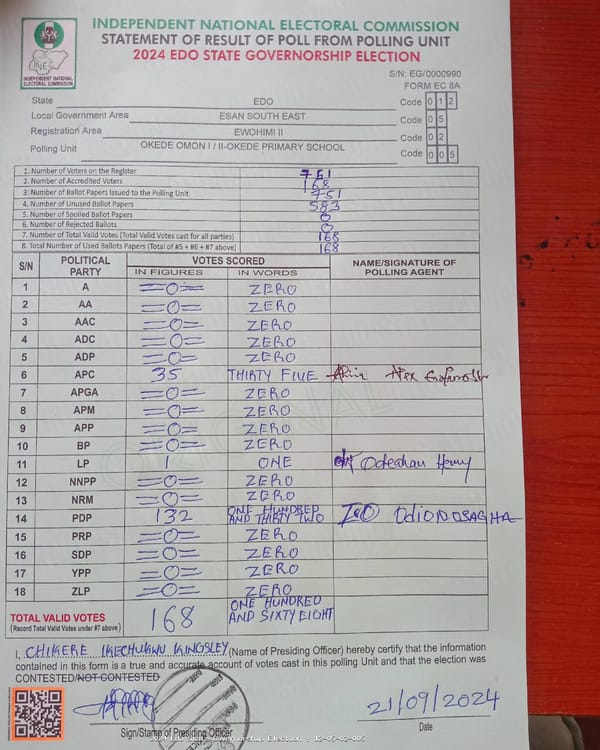 INDEPENDENT NATIONAL ELECTORAL COMMISSION
STATEMENT OF RESULT OF POLL FROM POLLING UNIT
2024 EDO STATE GOVERNORSHIP ELECTION
INDEPENDENT NATIONAL
ELECTORAL COMMISSION
S/N: EG/0000990
FORM EC 8A
State EDO Code 0 1 2
Local Government Area ESAN SOUTH EAST Code 0 5
Registration Area EWOHIMI II Code 0 2
Polling Unit OKEDE OMON I / II-OKEDE PRIMARY SCHOOL Code 0 0 5
1. Number of Voters on the Register 751
2. Number of Accredited Voters 168
3. Number of Ballot Papers Issued to the Polling Unit 751
4. Number of Unused Ballot Papers 583
5. Number of Spoiled Ballot Papers 0
6. Number of Rejected Ballots 0
7. Number of Total Valid Votes (Total Valid Votes cast for all parties) 168
8. Total Number of Used Ballots Papers (Total of #5 + #6 + #7 above) 168
S/N POLITICAL PARTY VOTES SCORED NAME/SIGNATURE OF POLLING AGENT
IN FIGURES IN WORDS
1 A =0= ZERO
2 AA =0= ZERO
3 AAC =0= ZERO
4 ADC =0= ZERO
5 ADP =0= ZERO
6 APC 35 THIRTY FIVE
7 APGA =0= ZERO
8 APM =0= ZERO
9 APP =0= ZERO
10 BP =0= ZERO
11 LP 1 ONE
12 NNPP =0= ZERO
13 NRM =0= ZERO
14 PDP 132 ONE HUNDRED AND THIRTY TWO
15 PRP =0= ZERO
16 SDP =0= ZERO
17 YPP =0= ZERO
18 ZLP =0= ZERO
TOTAL VALID VOTES 168 ONE HUNDRED AND SIXTY EIGHT
(Record Total Valid Votes under #7 above)
I, CHIKERE IKECHUKWU KINGSLEY (Name of Presiding Officer) hereby certify that the information
contained in this form is a true and accurate account of votes cast in this polling Unit and that the election was
CONTESTED/NOT CONTESTED
21/09/2024
Sign/Stamp of Presiding Officer Date